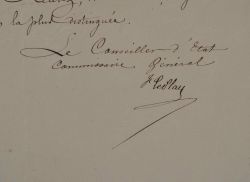 la plus distinguée.
Le Conseiller d'Etat
Commissaire Général
F. Le Play